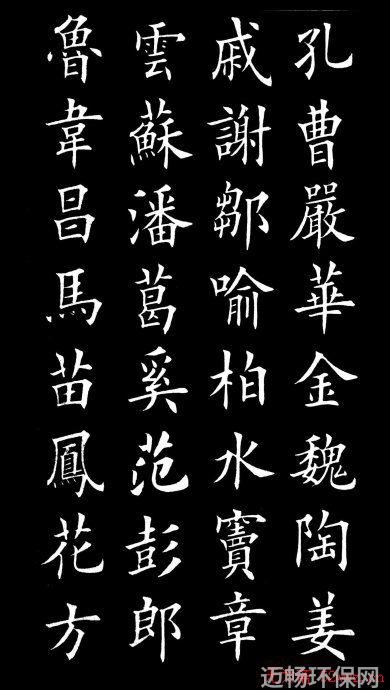 孔曹嚴華金魏陶姜
戚謝鄒喻柏水竇章
雲蘇潘葛奚范彭郎
魯韋昌馬苗鳳花方
迈畅环保网